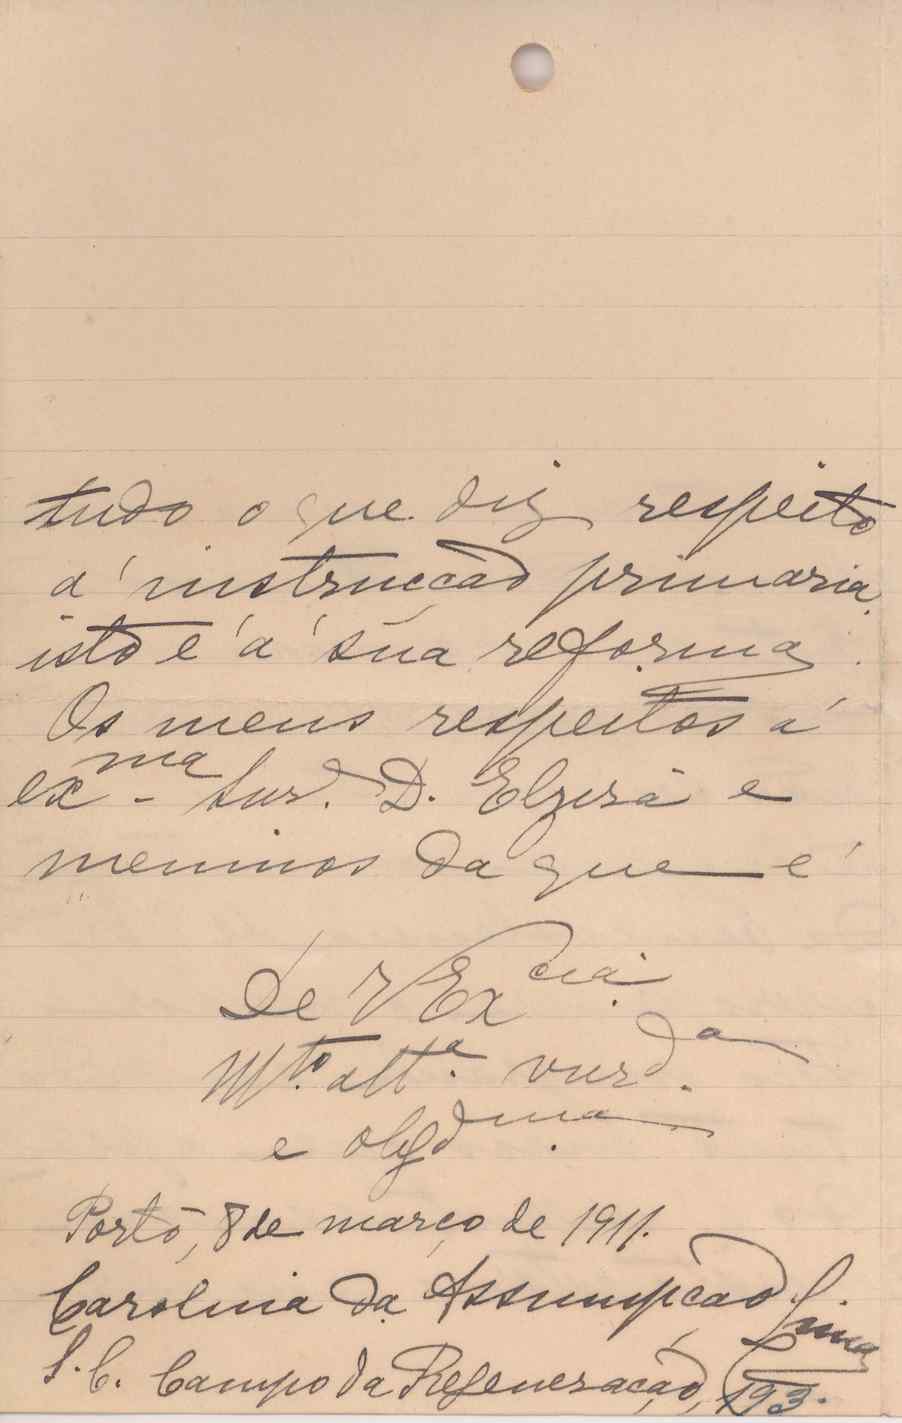 tudo o que diz respeito
á instrucção primaria,
isto é á sua reforma.
Os meus respeitos á
exma Snr.ª D. Elzira e
meninos da que é
De V Excia
Mto. attª. vnrda.
e obgdma
Porto, 8 de março de 1911.
Carolina da Assumpção Lima
S. C. Campo da Regeneração, 193.